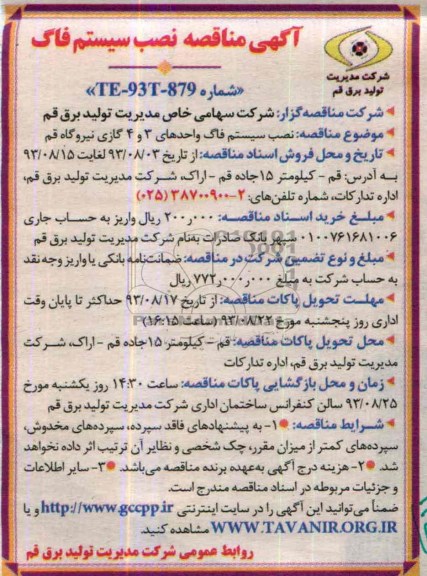 آگهی مناقصه نصب سیستم فاگ
شرکت مدیریت
تولید برق قم
«شماره TE-93T-879»
شرکت مناقصه‌گزار: شرکت سهامی خاص مدیریت تولید برق قم
موضوع مناقصه: نصب سیستم فاگ واحدهای ۳ و ۴ گازی نیروگاه قم
تاریخ و محل فروش اسناد مناقصه: از تاریخ ۹۳/۰۸/۰۳ لغایت ۹۳/۰۸/۱۵
به آدرس: قم - کیلومتر ۱۵جاده قم - اراک، شرکت مدیریت تولید برق قم،
اداره تدارکات، شماره تلفن‌های: ۲-۳۸۷۰۰۹۰۰ (۰۲۵)
مبلغ خرید اسناد مناقصه: ۲۰۰٫۰۰۰ ریال واریز به حساب جاری
۰۱۰۰۷۶۱۶۸۱۰۰۶ سپهر بانک صادرات به‌نام شرکت مدیریت تولید برق قم
مبلغ و نوع تضمین شرکت در مناقصه: ضمانت‌نامه بانکی یا واریز وجه نقد
به حساب شرکت به مبلغ ۷۷۲٫۰۰۰٫۰۰۰ ریال
مهلت تحویل پاکات مناقصه: از تاریخ ۹۳/۰۸/۱۷ حداکثر تا پایان وقت
اداری روز پنجشنبه مورخ ۹۳/۰۸/۲۲ (ساعت ۱۶:۱۵)
محل تحویل پاکات مناقصه: قم - کیلومتر ۱۵جاده قم - اراک، شرکت
مدیریت تولید برق قم، اداره تدارکات
زمان و محل بازگشایی پاکات مناقصه: ساعت ۱۴:۳۰ روز یکشنبه مورخ
۹۳/۰۸/۲۵ سالن کنفرانس ساختمان اداری شرکت مدیریت تولید برق قم
شرایط مناقصه: ۱- به پیشنهادهای فاقد سپرده، سپرده‌های مخدوش،
سپرده‌های کمتر از میزان مقرر، چک شخصی و نظایر آن ترتیب اثر داده نخواهد
شد. ۲- هزینه درج آگهی به‌عهده برنده مناقصه می‌باشد. ۳- سایر اطلاعات
و جزئیات مربوطه در اسناد مناقصه مندرج است.
ضمناً می‌توانید این آگهی را در سایت اینترنتی http://www.gccpp.ir و یا
WWW.TAVANIR.ORG.IR مشاهده کنید.
روابط عمومی شرکت مدیریت تولید برق قم